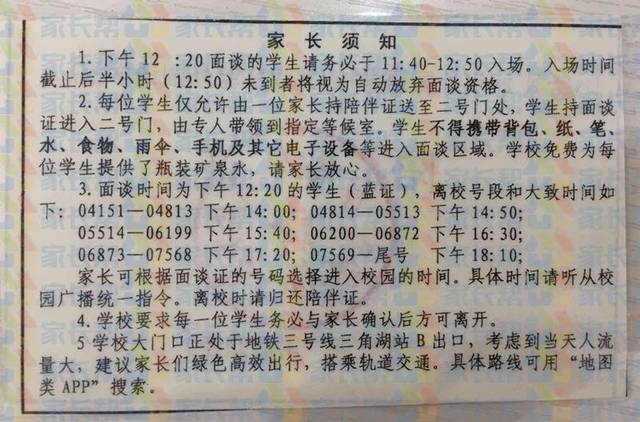 家长须知
1.下午12：20面谈的学生请务必于11:40-12:50入场。入场时间
截止后半小时(12:50)未到者将视为自动放弃面谈资格。
2.每位学生仅允许由一位家长持陪伴证送至二号门处，学生持面谈
证进入二号门，由专人带领到指定等候室。学生不得携带背包、纸、笔、
水、食物、雨伞、手机及其它电子设备等进入面谈区域。学校免费为每
位学生提供了瓶装矿泉水，请家长放心。
3.面谈时间为下午12:20的学生(蓝证)，离校号段和大致时间如
下：04151—04813 下午14:00；04814—05513 下午14:50；
05514—06199 下午15:40；06200—06872 下午16:30；
06873—07568 下午17:20；07569—尾号 下午18:10；
家长可根据面谈证的号码选择进入校园的时间。具体时间请听从校
园广播统一指令。离校时请归还陪伴证。
4.学校要求每一位学生务必与家长确认后方可离开。
5学校大门口正处于地铁三号线三角湖站B出口，考虑到当天人流
量大，建议家长们绿色高效出行，搭乘轨道交通。具体路线可用“地图
类APP”搜索。